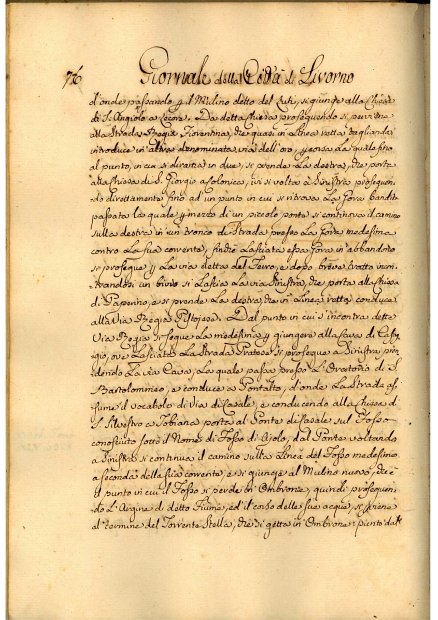 76 Giornale della Città di Livorno
d'onde passando pel Mulino detto del Luti, si giunge alla Chiesa
di S. Angiolo a Lecore. Da detta Chiesa proseguendo si perviene
alla Strada Regia Fiorentina, che quasi in Linea retta tagliandosi
introduce in altra denominata via dell'oro, percorsa la quale fino
al punto, in cui si dirama in due, si prende La destra, che porta
alla Chiesa di S. Giorgio a Colonica, ivi si volta a Sinistra proseguen
do direttamente fino ad un punto in cui si ritrova La Gora bandita
passata la quale per mezzo di un piccolo ponte si continova il camino
sulla destra in un tronco di Strada presso La Gora medesima
contro La sua corrente, finchè Lasciata essa Gora in abbandono
si prosegue per La via detta del Ferro, e dopo breve tratto incon
trandosi un bivio si Lascia La via Sinistra, che porta alla Chiesa
di Paperino, e si prende La destra, che in Linea retta conduce
alla Via Regia Pistojese. Dal punto in cui s'incontra detta
Via Regia si segue La medesima per giungere alla
ove Lasciata La Strada Pratese si prosegue a Sinistra pren
dendo La via Cava, La quale passa presso L'Oratorio di S.
Bartolommeo, e conduce a Pontalto, d'onde La Strada as
sume il vocabolo di Via di Casale, e conducendo alla Chiesa di
S. Silvestro a Tobiana porta al Ponte di Casale sul Fosso
conosciuto sotto il Nome di Fosso di Ajolo, dal Ponte voltando
a Sinistra si continua il camino sulla Linea del Fosso medesimo
a seconda della sua corrente, e si giunge al Mulino nuovo, che è
il punto in cui il Fosso si perde in Ombrone, quindi proseguen
do L'Argine di detto Fiume, ed il corso delle sue acque, si perviene
al termine del Torrente Stella, che si getta in Ombrone: punto dal